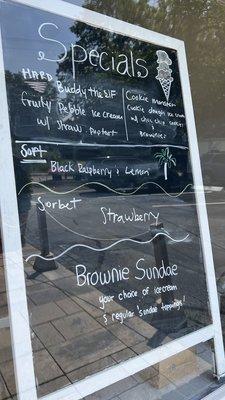 Specials
HARD
Buddy the Elf
fruity Pebble Ice cream
w/ straw. poptart
Cookie Monster
Cookie dough Ice cream
w/ chip chip cookies
&
brownies
SOFT
Black Raspberry & Lemon
Sorbet
Strawberry
Brownie Sundae
your choice of icecream
& regular sundae toppings!